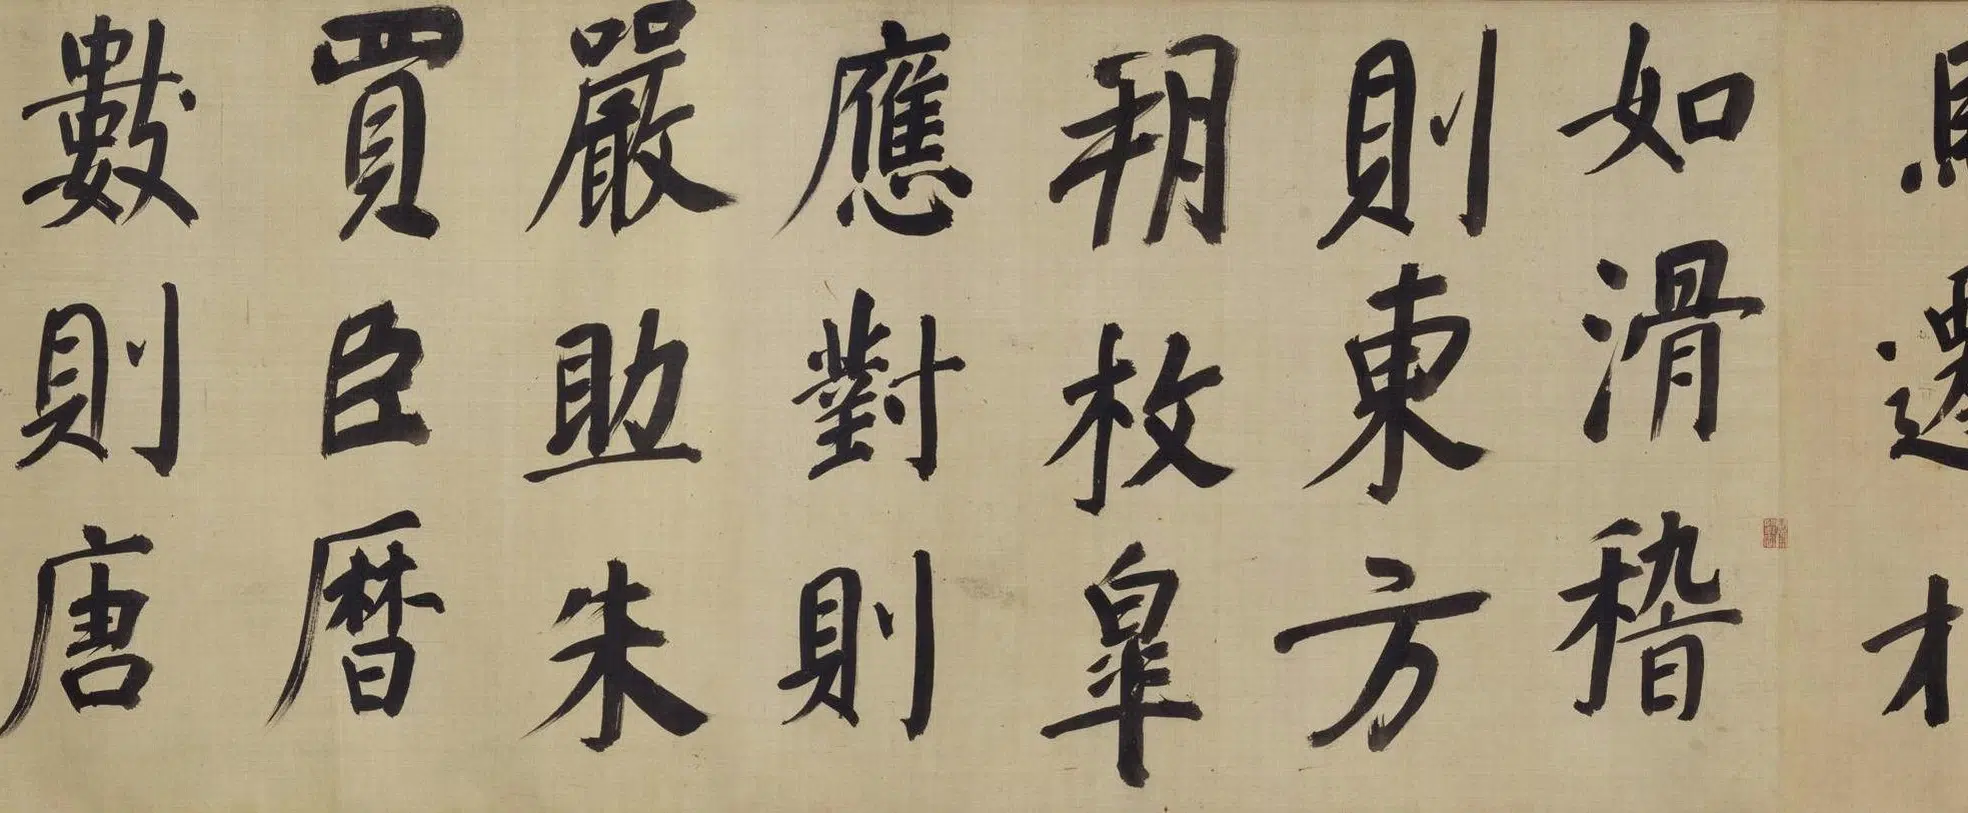 如滑稽
則東方
朔枚皐
應對則
嚴助朱
買臣暦
數則唐